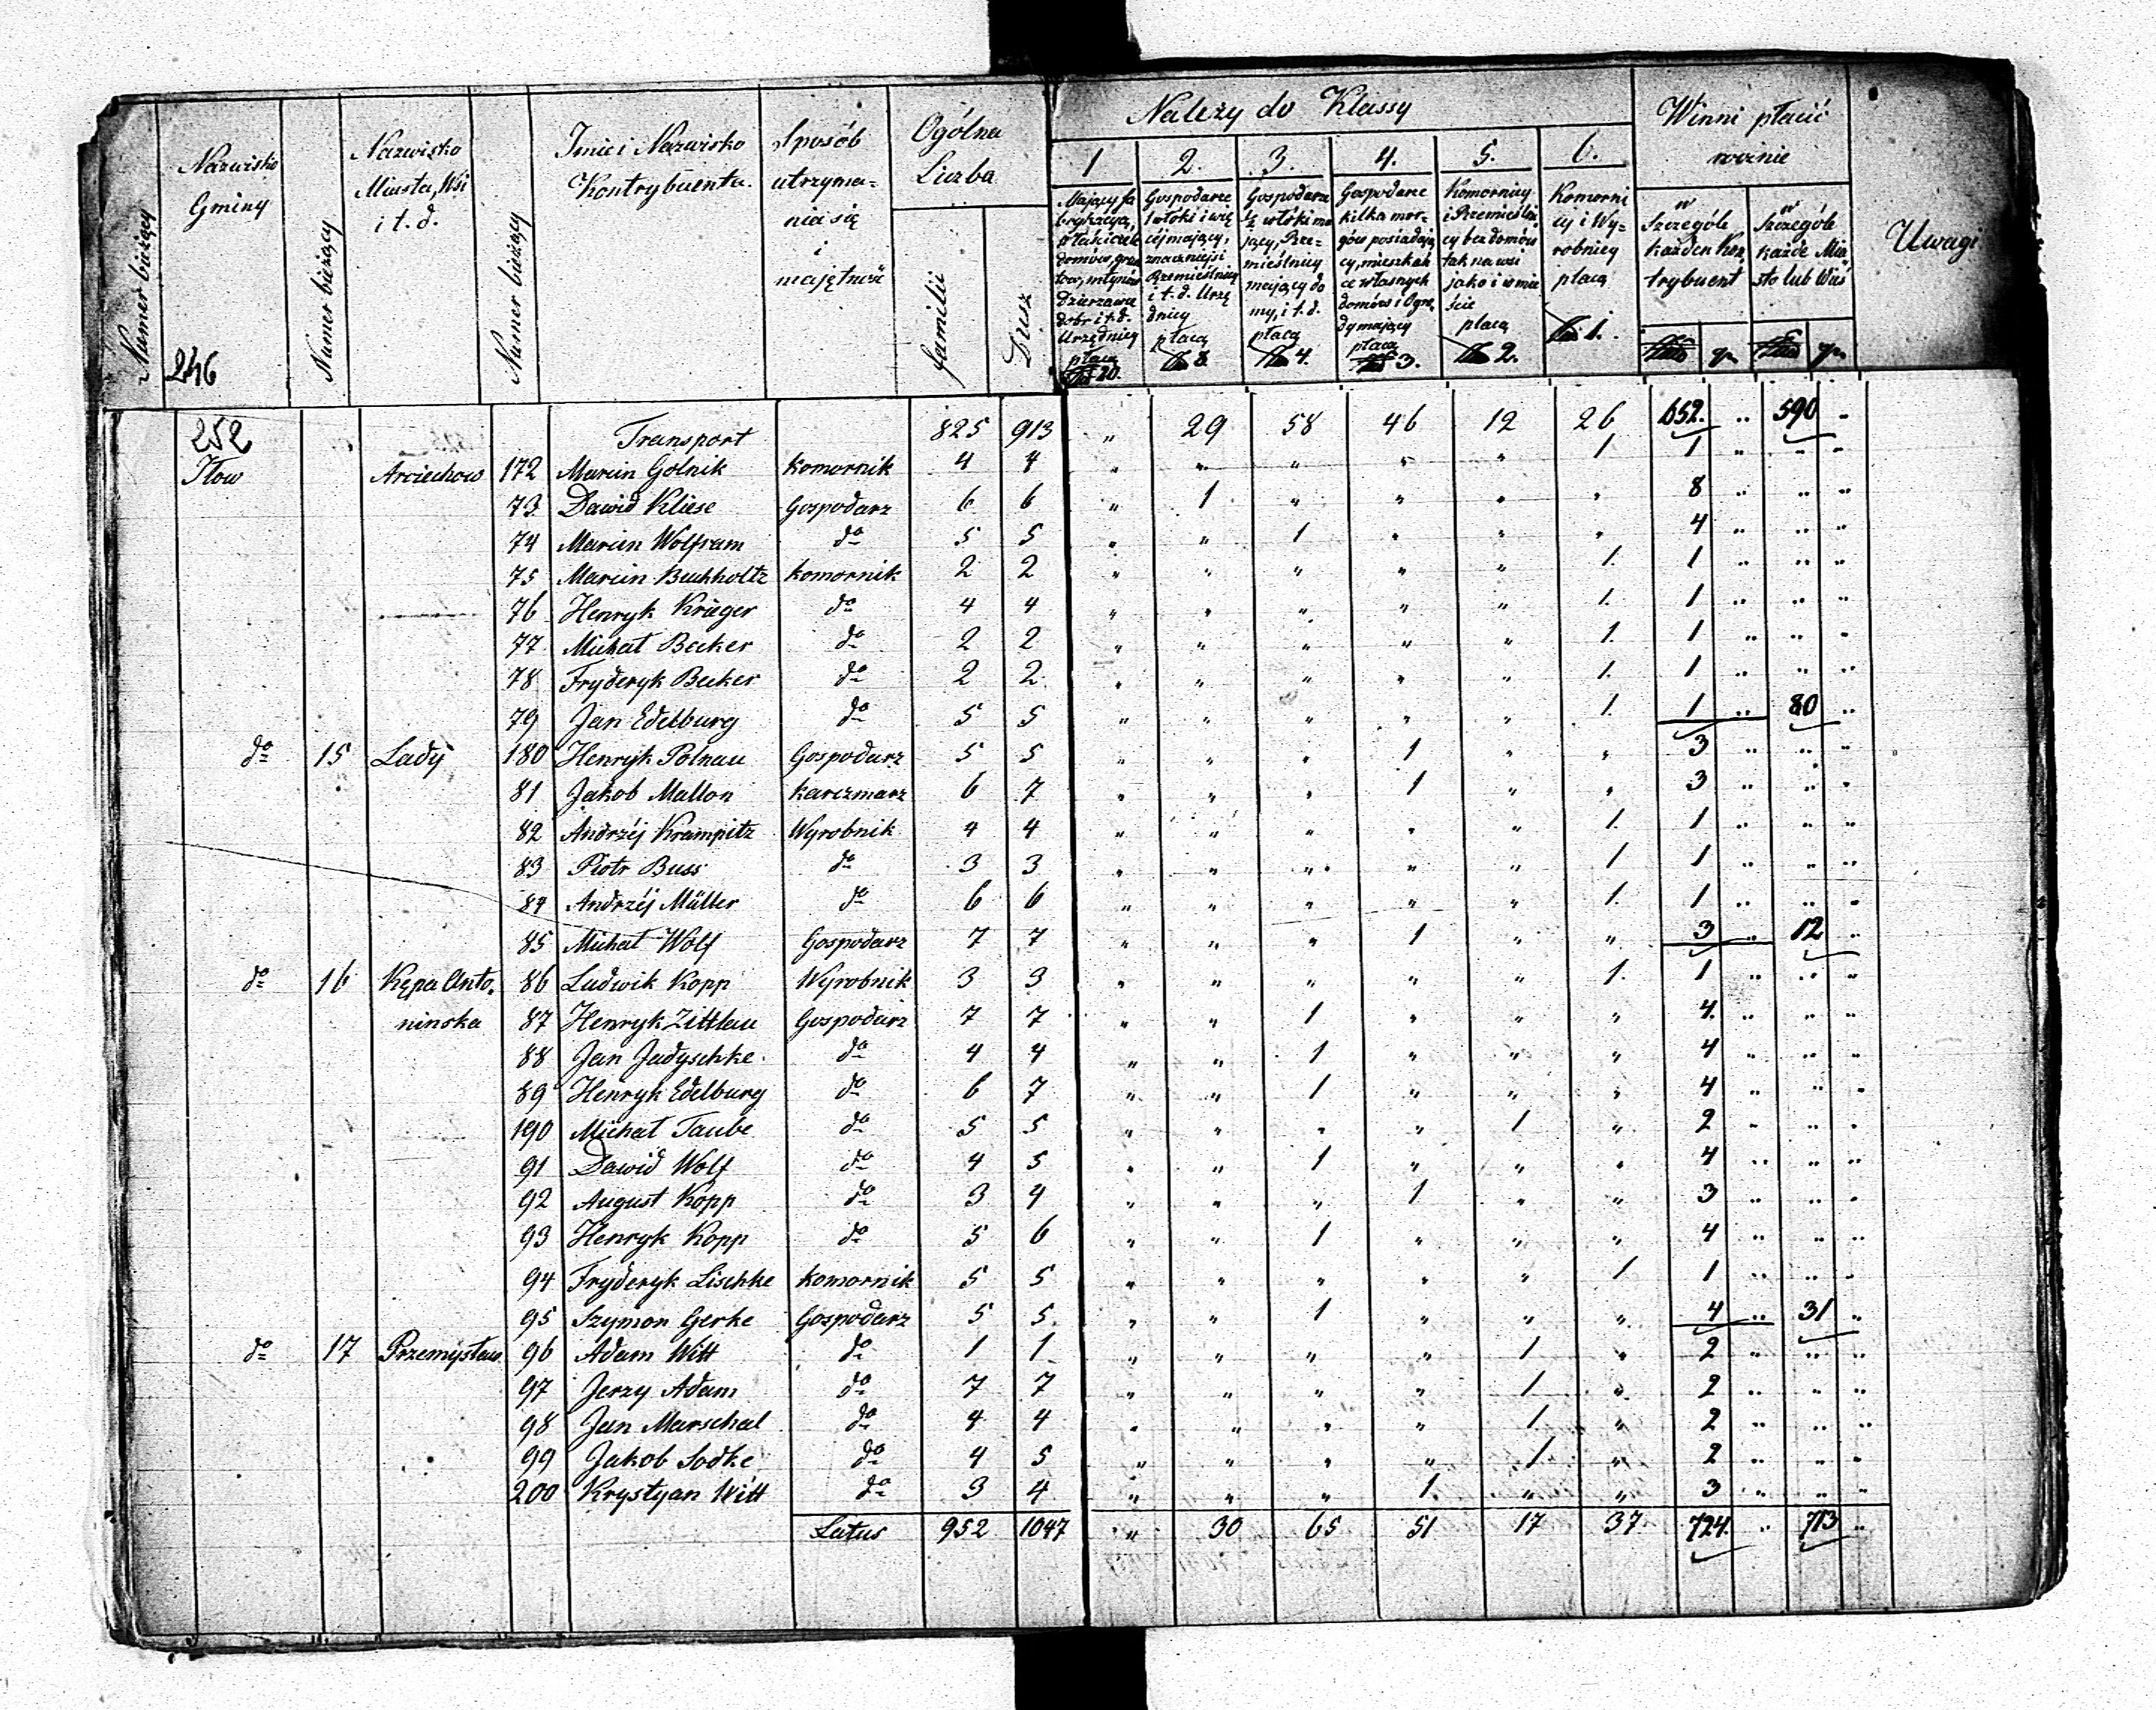 Numer bieżący
Nazwisko Gminy
246
Numer bieżący
Nazwisko Miasta, Wsi i t. d.
Numer bieżący
Imie i Nazwisko Kontrybuenta.
Sposób utrzyma= nia się i majętność
Ogólna Liczba
familii
Dusz
Należy do Klassy
1
Mający fabrykacyą, domów, młynów Dzierzawcy dobr i t. d. Urzędnicy płacą 20.
2.
Gospodarze 1 włoki i więcéj mający, znaczniejsi Rzemieślnicy i t. d. Urzędnicy płacą 8.
3.
Gospodarze ½ włóki mający, Rze= mieślnicy mający domy, i t. d. płacą 4.
4.
Gospodarze kilka mor= gów posiadający, mieszkań ce własnych domów i Ogrody mający płacą 3.
5.
Komornicy i Rzemieślnicy bez domów tak na wsi jako i w mieście płacą 2.
6.
Komornicy i Wy= robnicy płacą 1.
Winni płacić rocznie
w Szczególe każden Kontrybuent
w Szczególe każde Miasto lub Wieś
gr. gr.
Uwagi
252 Transport 825 913 " 29 58 46 12 26 652. " 590 "
Iłow Arciechow 172 Marcin Golnik Komornik 4 4 " " " " " 1 1 " " "
73 Dawid Kliese Gospodarz 6 6 " 1 " " " " 8 " " "
74 Marcin Wolfram do 5 5 " " 1 " " " 4 " " "
75 Marcin Buchholtz Komornik 2 2 " " " " " 1. 1 " " "
76 Henryk Krieger do 4 4 " " " " " 1. 1 " " "
77 Michał Becker do 2 2 " " " " " 1. 1 " " "
78 Fryderyk Becker do 2 2 " " " " " 1. 1 " " "
79 Jan Edelburg do 5 5 " " " " " 1. 1 " 80 "
do 15 Lady 180 Henryk Polnau Gospodarz 5 5 " " " 1 " " 3 " " "
81 Jakob Mallon Karczmarz 6 7 " " " 1 " " 3 " " "
82 Andrzéj Krampitz Wyrobnik 4 4 " " " " " 1. 1 " " "
83 Piotr Buss do 3 3 " " " " " 1 1 " " "
84 Andrzéj Müller do 6 6 " " " " " 1. 1 " " "
85 Michał Wolf Gospodarz 7 7 " " " 1 " " 3 " 12 "
do 16 Kępa Anto. 86 Ludwik Kopp Wyrobnik 3 3 " " " " " 1. 1 " " "
ninska 87 Henryk Zittlau Gospodarz 7 7 " " 1 " " " 4. " " "
88 Jan Jadyschke do 4 4 " " 1 " " " 4 " " "
89 Henryk Edelburg do 6 7 " " 1 " " " 4 " " "
190 Michał Taube do 5 5 " " " " 1 " 2 " " "
91 Dawid Wolf do 4 5 " " 1 " " " 4 " " "
92 August Kopp do 3 4 " " " 1 " " 3 " " "
93 Henryk Kopp do 5 6 " " 1 " " " 4 " " "
94 Fryderyk Lischke Komornik 5 5 " " " " " 1 1 " " "
95 Szymon Gerke Gospodarz 5 5 " " 1 " " " 4 " 31 "
do 17 Przemysław 96 Adam Witt do 1 1 " " " " 1 " 2 " " "
97 Jerzy Adam do 7 7 " " " " 1 " 2 " " "
98 Jan Marschal do 4 4 " " " " 1. " 2 " " "
99 Jakob Sodke do 4 5 " " " " 1 " 2 " " "
200 Krystyan Witt do 3 4 " " " 1. " " 3 " " "
Latus 952 1047 " 30 65 51 17 37. 724. " 713 "